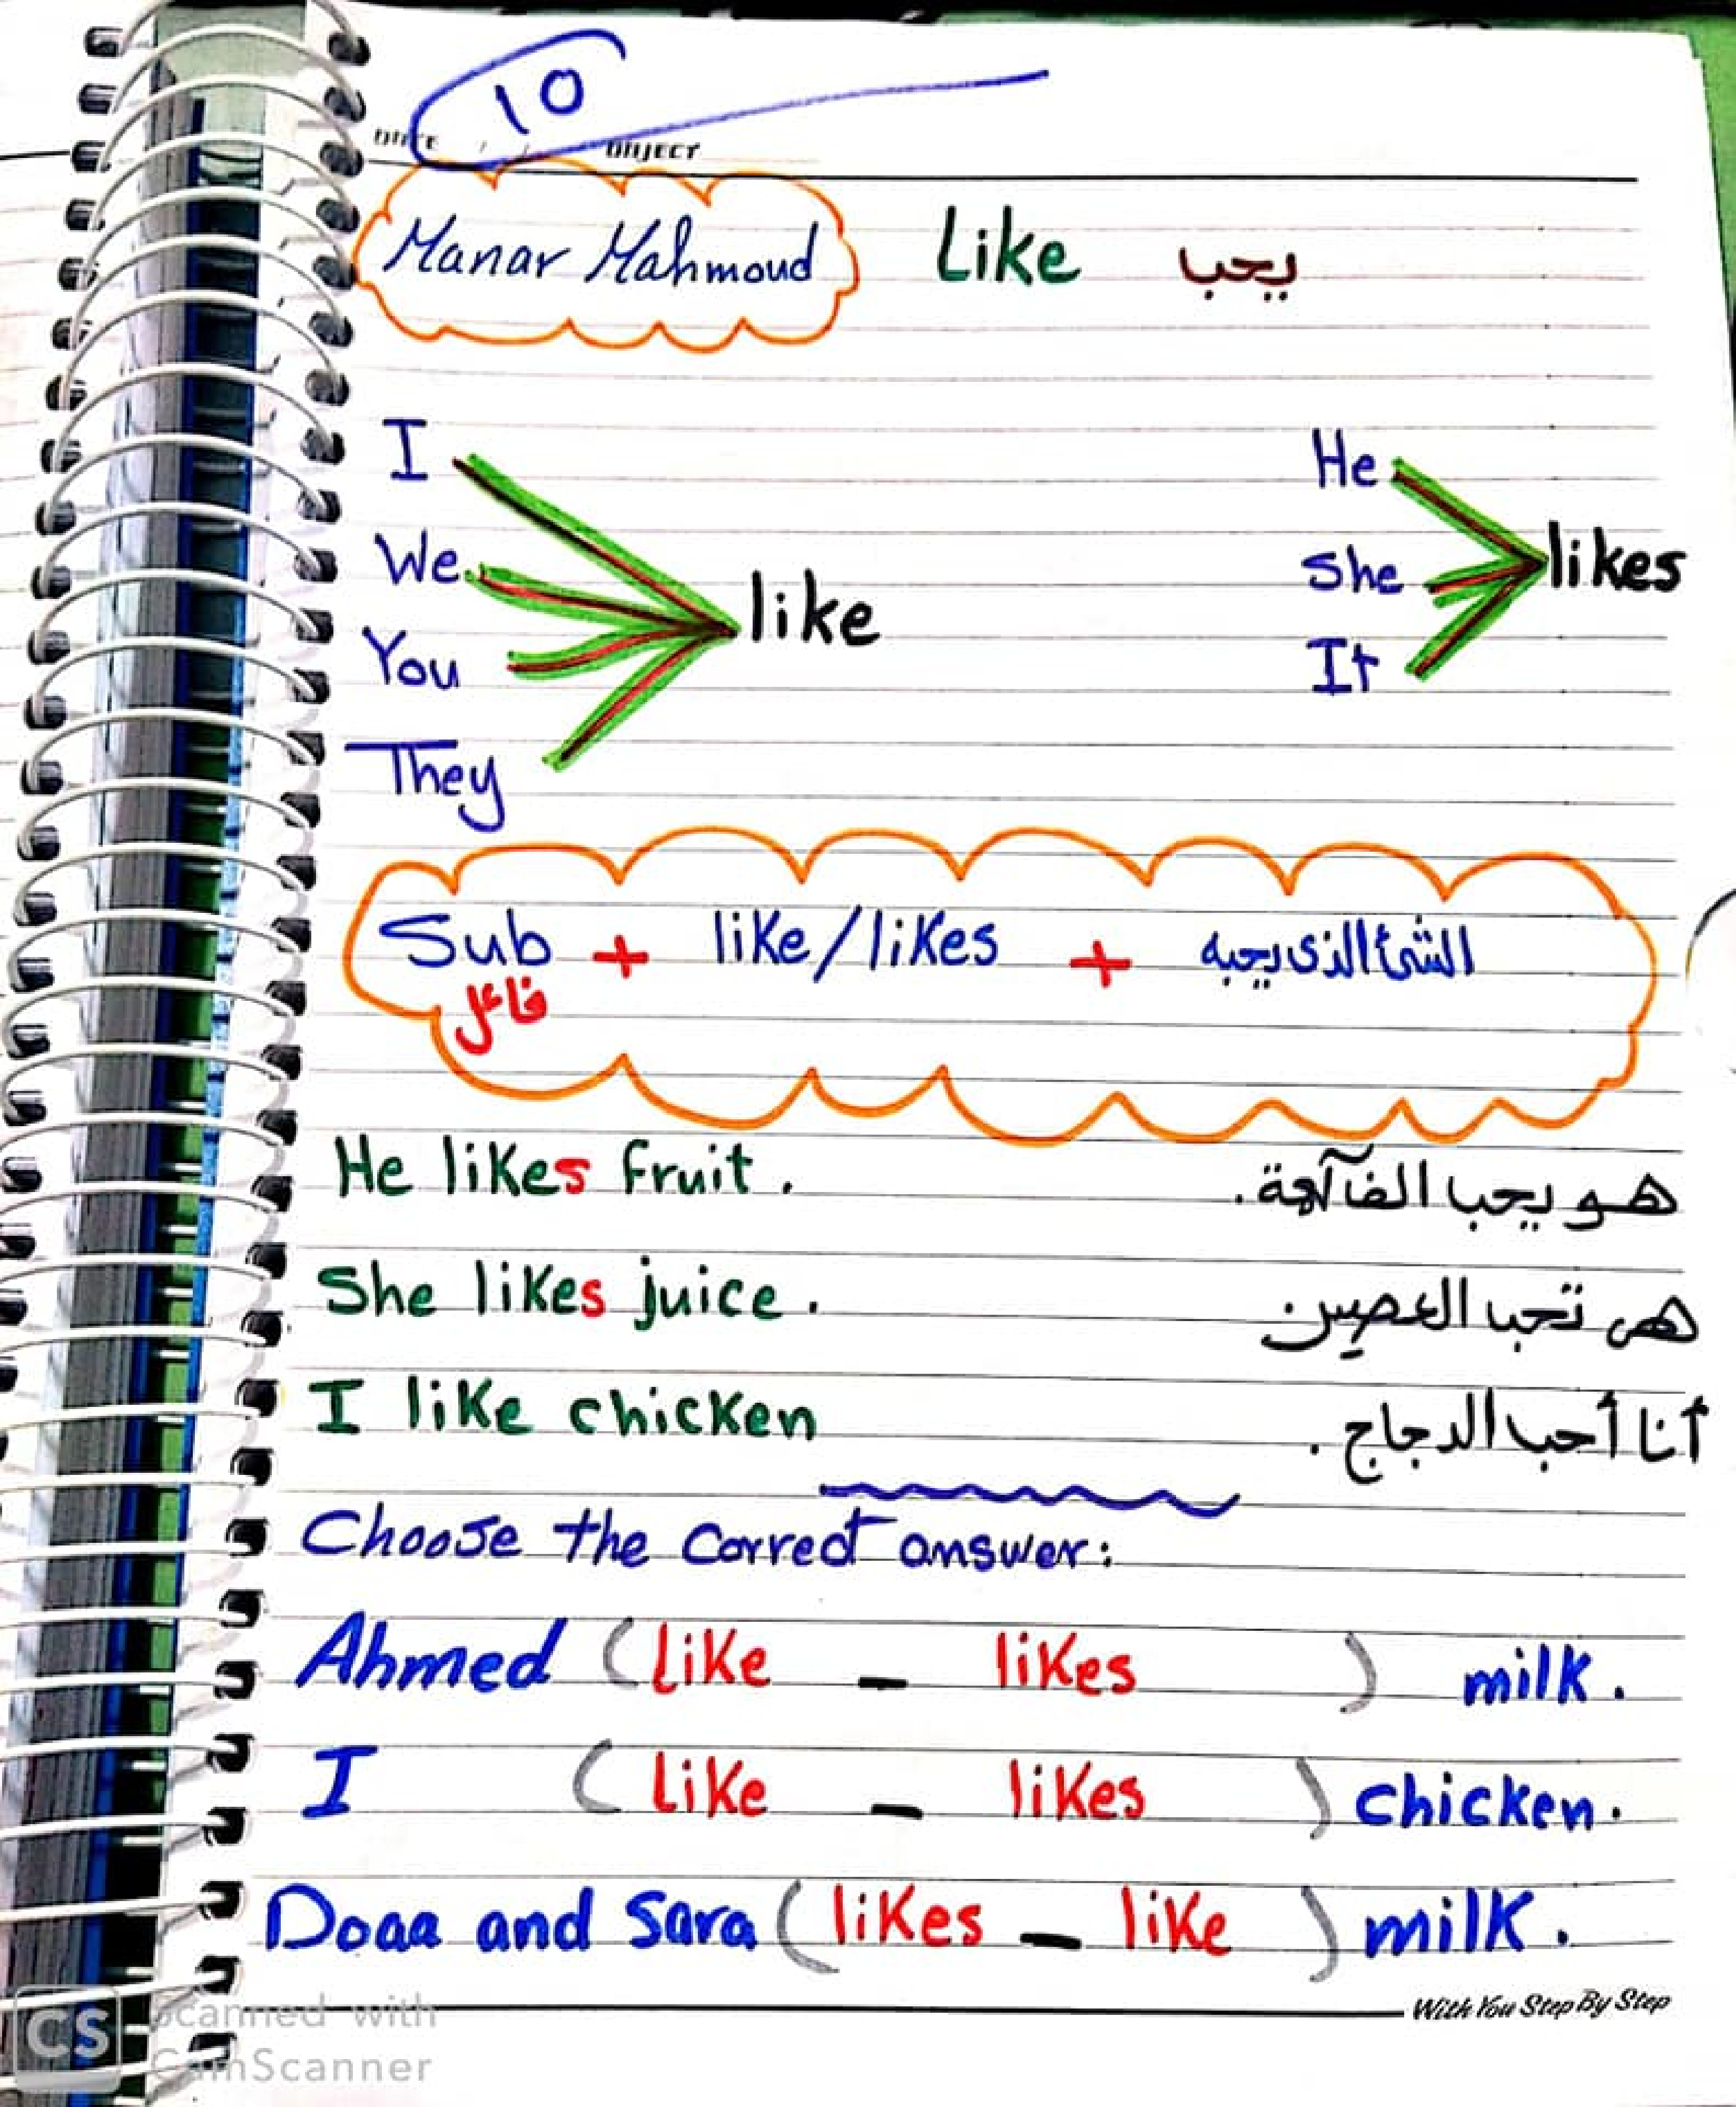 10
DATE / / OBJECT
Manar Mahmoud Like يحب
I He
We She likes
like
You It
They
Sub + like/likes + الشئ الذى يحبه
فاعل
He likes fruit. هو يحب الفاكهة.
She likes juice. هى تحب العصير.
I like chicken أنا أحب الدجاج.
Choose the correct answer:
Ahmed (like - likes) milk.
I (like - likes) chicken.
Doaa and Sara (likes - like) milk.
With You Step By Step
CS Scanned with
CamScanner